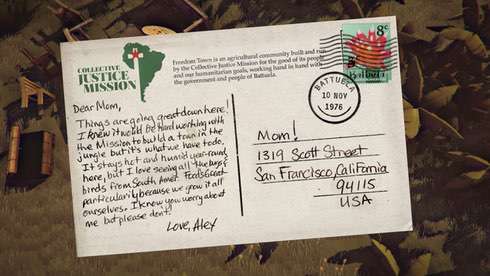 COLLECTIVE
JUSTICE
MISSION
Freedom Town is an agricultural community built and run
by the Collective Justice Mission for the good of its people
and our humanitarian goals, working hand in hand with
the government and people of Battuela.
8c
Battuela
BATTUELA
10 NOV
1976
Dear Mom,
Things are going great down here.
I knew it would be hard working with
the Mission to build a town in the
jungle but it's what we have to do.
It stays hot and humid year-round
here, but I love seeing all the bugs &
birds from South Amer. Food's Great
particularly because we grow it all
ourselves. I know you worry about
me but please don't!
Love, Alex
Mom!
1319 Scott Street
San Francisco, California
94115
USA